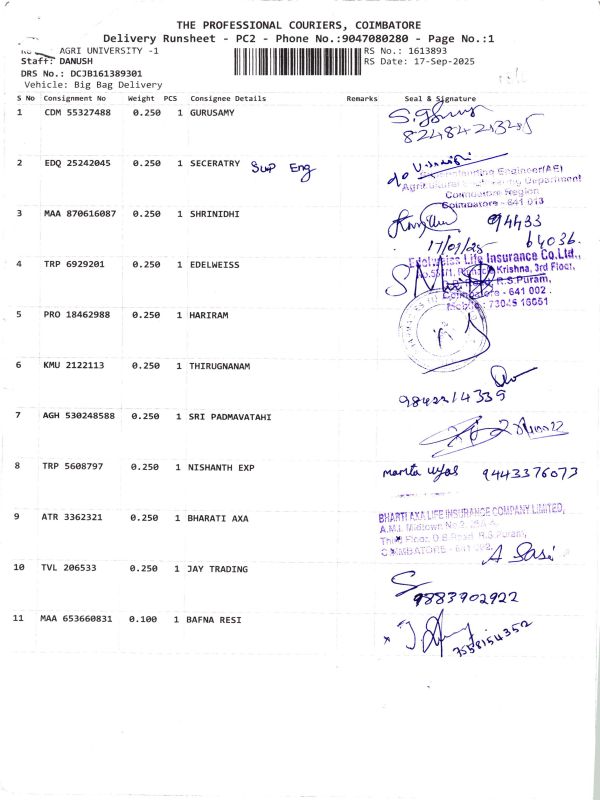 THE PROFESSIONAL COURIERS, COIMBATORE
Delivery Runsheet - PC2 - Phone No.:9047080280 - Page No.:1
AGRI UNIVERSITY -1
RS No.: 1613893
Staff: DANUSH
RS Date: 17-Sep-2025
DRS No.: DCJB161389301
Vehicle: Big Bag Delivery
S No Consignment No Weight PCS Consignee Details Remarks Seal & Signature
1 CDM 55327488 0.250 1 GURUSAMY
8248421325
2 EDQ 25242045 0.250 1 SECERATRY Sup Eng
Engineer(AE)
Department
Coimbatore Region
Coimbatore - 641 013
3 MAA 870616087 0.250 1 SHRINIDHI
94433
64036.
17/09/25
4 TRP 6929201 0.250 1 EDELWEISS
Edelweiss Life Insurance Co.Ltd.,
Krishna, 3rd Floor,
R.S.Puram,
Coimbatore - 641 002.
Mobile: 73045 16651
5 PRO 18462988 0.250 1 HARIRAM
6 KMU 2122113 0.250 1 THIRUGNANAM
9842214339
7 AGH 530248588 0.250 1 SRI PADMAVATAHI
8 TRP 5608797 0.250 1 NISHANTH EXP
mamta vyas 9443376073
9 ATR 3362321 0.250 1 BHARATI AXA
BHARTI AXA LIFE INSURANCE COMPANY LIMITED,
A.M.I. Midtown No 2, 25A-A,
Third Floor, D.B.Road, R.S.Puram,
COIMBATORE - 641 002.
A Sasi
10 TVL 206533 0.250 1 JAY TRADING
9883902922
11 MAA 653660831 0.100 1 BAFNA RESI
7558154352